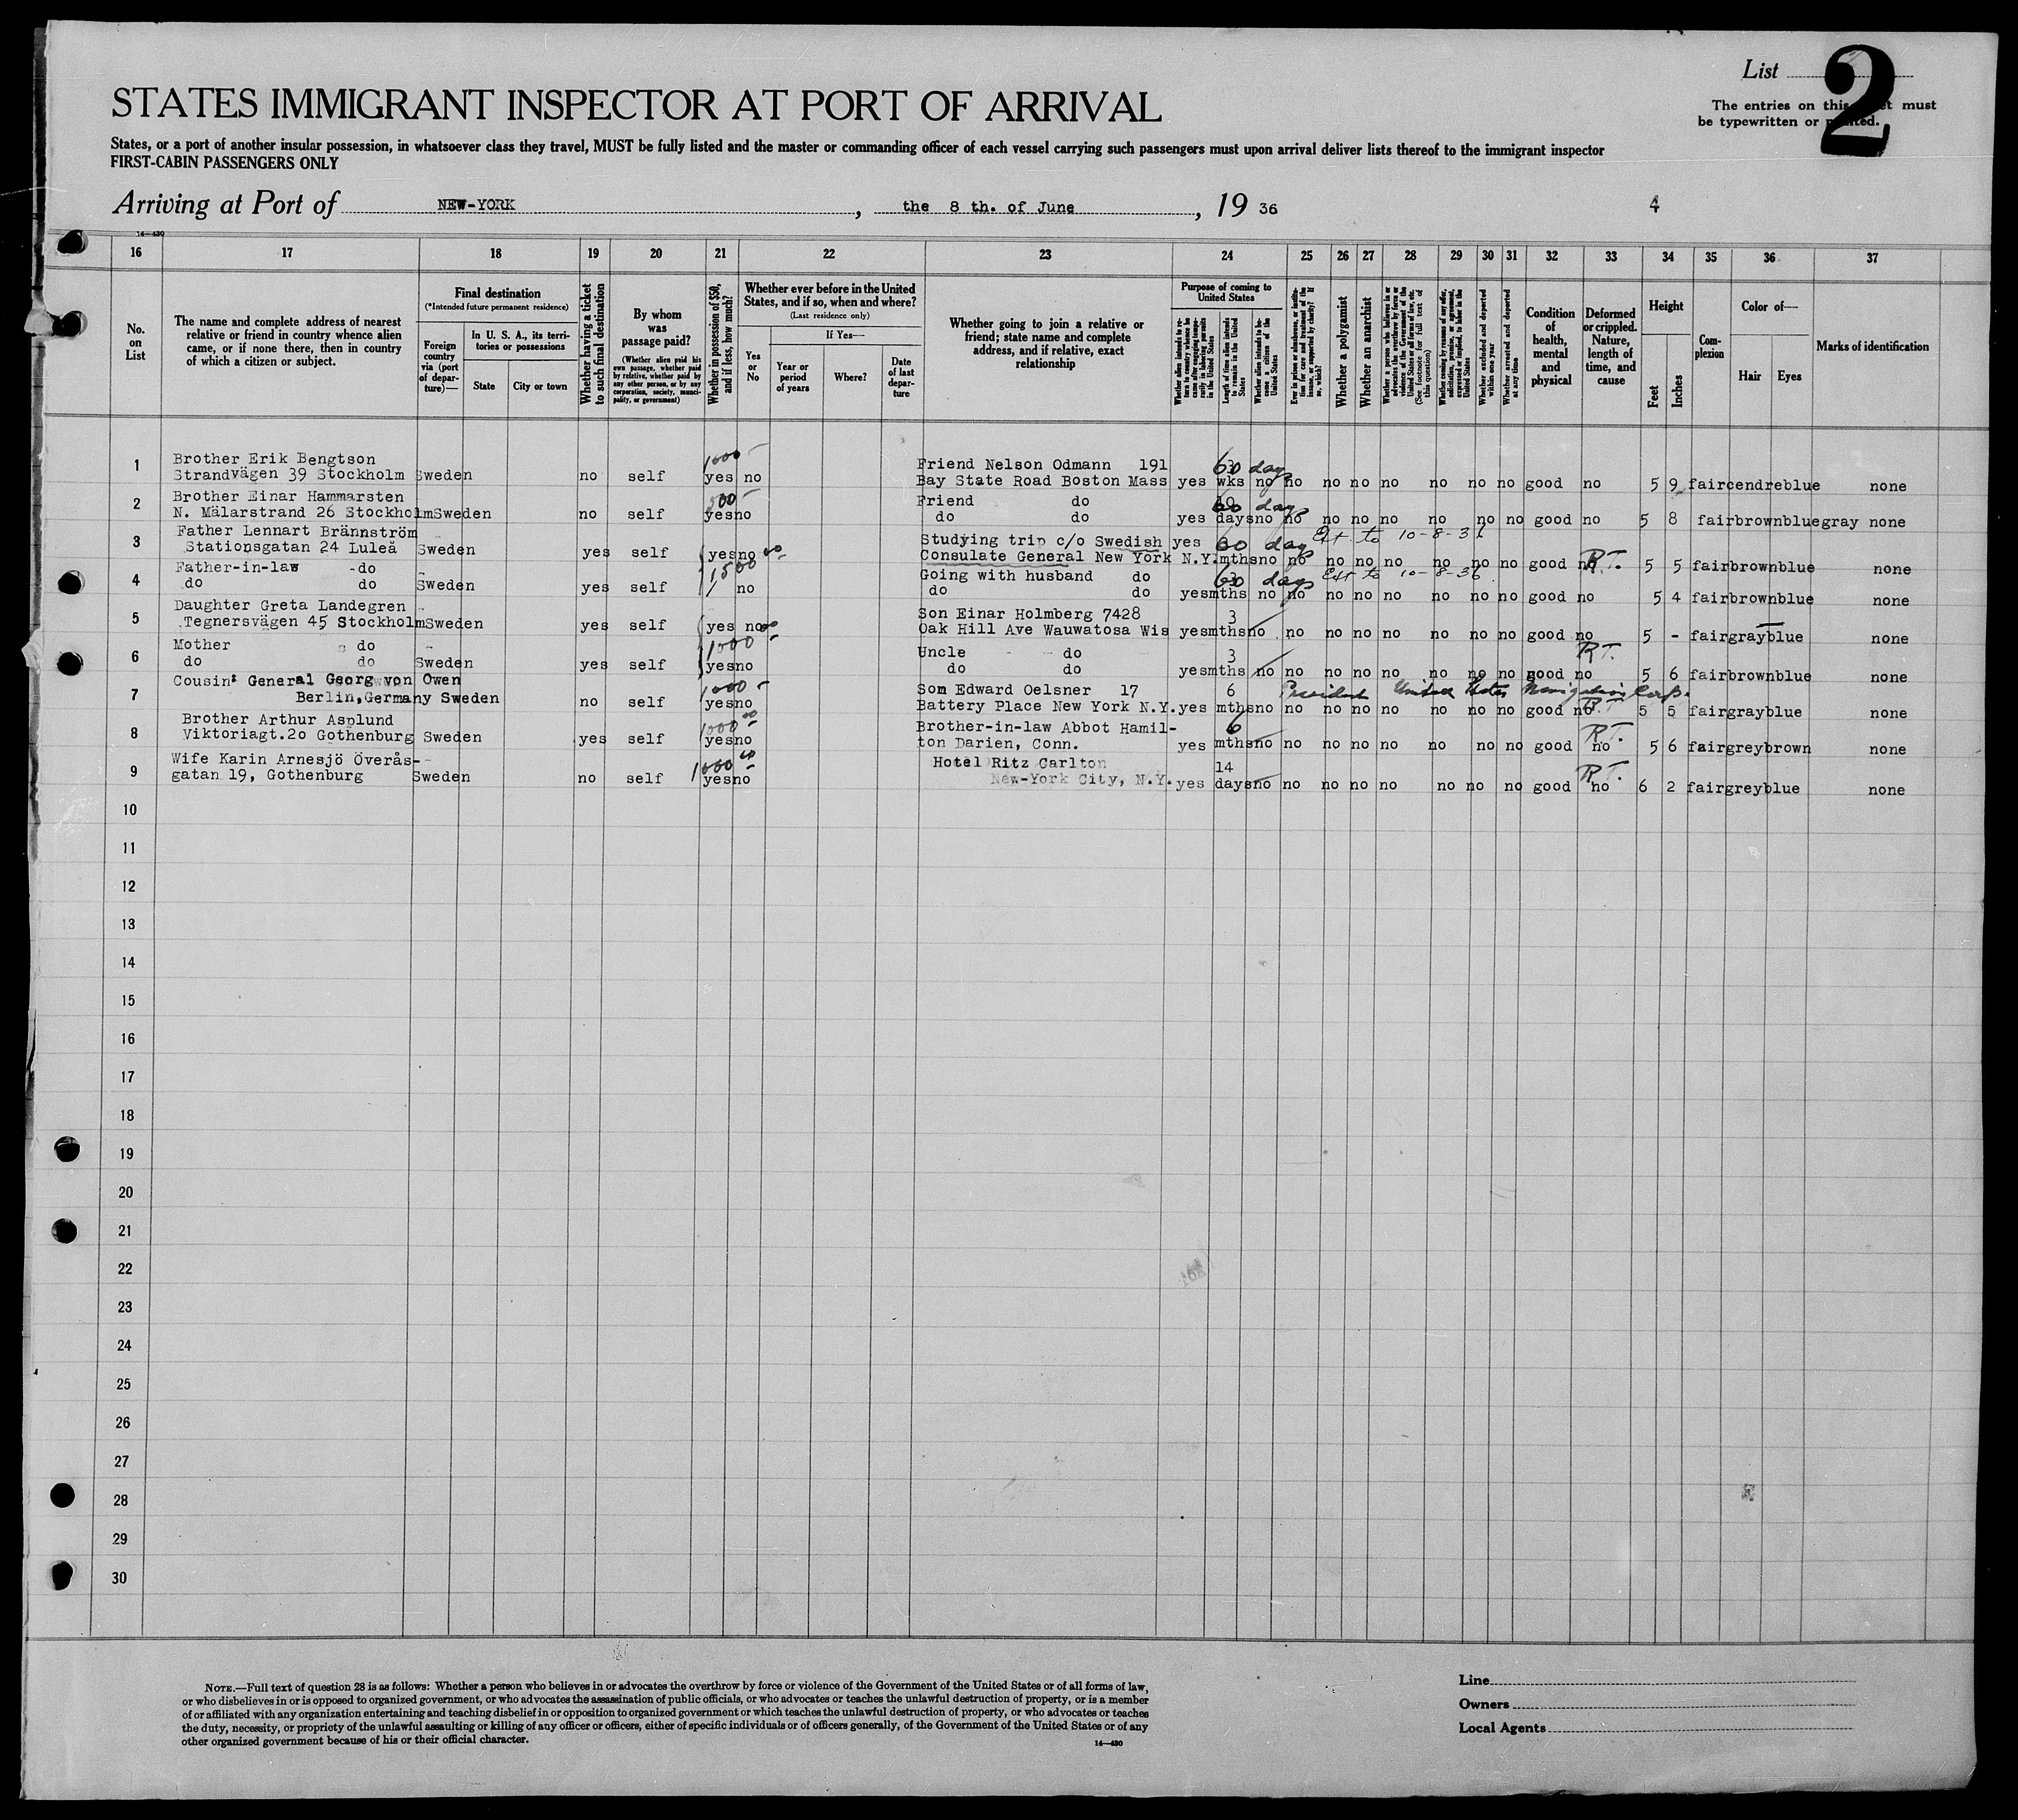 List 2
The entries on this must
be typewritten or printed.
STATES IMMIGRANT INSPECTOR AT PORT OF ARRIVAL
States, or a port of another insular possession, in whatsoever class they travel, MUST be fully listed and the master or commanding officer of each vessel carrying such passengers must upon arrival deliver lists thereof to the immigrant inspector
FIRST-CABIN PASSENGERS ONLY
Arriving at Port of NEW-YORK, the 8 th. of June, 19 36
4
14—430
16 17 18 19 20 21 22 23 24 25 26 27 28 29 30 31 32 33 34 35 36 37
No. on List
The name and complete address of nearest relative or friend in country whence alien came, or if none there, then in country of which a citizen or subject.
Final destination
(*Intended future permanent residence)
Foreign country via (port of departure)—
In U. S. A., its territories or possessions
State
City or town
Whether having a ticket to such final destination
By whom was passage paid?
(Whether alien paid his own passage, whether paid by relative, whether paid by any other person, or by any corporation, society, municipality, or government)
Whether in possession of $50, and if less, how much?
Whether ever before in the United States, and if so, when and where?
(Last residence only)
Yes or No
If Yes—
Year or period of years
Where?
Date of last departure
Whether going to join a relative or friend; state name and complete address, and if relative, exact relationship
Purpose of coming to United States
Whether alien intends to return to country whence he came after engaging temporarily in laboring pursuits in the United States
Length of time alien intends to remain in the United States
Whether alien intends to become a citizen of the United States
Ever in prison or almshouse, or institution for care and treatment of the insane, or supported by charity? If so, which?
Whether a polygamist
Whether an anarchist
Whether a person who believes in or advocates the overthrow by force or violence of the Government of the United States or all forms of law, etc. (See footnote for full text of this question)
Whether coming by reason of any offer, solicitation, promise, or agreement, expressed or implied, to labor in the United States
Whether excluded and deported within one year
Whether arrested and deported at any time
Condition of health, mental and physical
Deformed or crippled. Nature, length of time, and cause
Height
Feet
Inches
Complexion
Color of—
Hair
Eyes
Marks of identification
1000 -
1 Brother Erik Bengtson Friend Nelson Odmann 191 60 days
Strandvägen 39 Stockholm Sweden no self yes no Bay State Road Boston Mass yes wks no no no no no no no no good no 5 9 fair cendre blue none
500 -
2 Brother Einar Hammarsten Friend do 60 days
N. Mälarstrand 26 Stockholm Sweden no self yes no do do yes days no no no no no no no no good no 5 8 fair brown bluegray none
3 Father Lennart Brännström Studying trip c/o Swedish yes 60 days Ext to 10-8-36
Stationsgatan 24 Luleå Sweden yes self yes no Consulate General New York N.Y. mths no no no no no no no no good no R.T. 5 5 fair brown blue none
1500
4 Father-in-law do Going with husband do 60 days Ext to 10-8-36
do do Sweden yes self no do do yes mths no no no no no no no no good no 5 4 fair brown blue none
5 Daughter Greta Landegren Son Einar Holmberg 7428 3
Tegnersvägen 45 Stockholm Sweden yes self yes no Oak Hill Ave Wauwatosa Wis yes mths no no no no no no no no good no 5 - fair gray blue none
1000
6 Mother do Uncle do 3 R.T.
do do Sweden yes self yes no do do yes mths no no no no no no no no good no 5 6 fair brown blue none
1000 -
7 Cousin: General Georg von Owen Son Edward Oelsner 17 6 President United States Navigation Corp.
Berlin, Germany Sweden no self yes no Battery Place New York N.Y. yes mths no no no no no no no no good no R.T 5 5 fair gray blue none
1000 00
8 Brother Arthur Asplund Brother-in-law Abbot Hamil- 6 R.T.
Viktoriagt.2o Gothenburg Sweden yes self yes no ton Darien, Conn. yes mths no no no no no no no no good no 5 6 fair grey brown none
1000 00
9 Wife Karin Arnesjö Överås- Hotel Ritz Carlton 14 R.T.
gatan 19, Gothenburg Sweden no self yes no New-York City, N.Y. yes days no no no no no no no no good no 6 2 fair grey blue none
10
11
12
13
14
15
16
17
18
19
20
21
22
23
24
25
26
27
28
29
30
NOTE.—Full text of question 28 is as follows: Whether a person who believes in or advocates the overthrow by force or violence of the Government of the United States or of all forms of law,
or who disbelieves in or is opposed to organized government, or who advocates the assassination of public officials, or who advocates or teaches the unlawful destruction of property, or is a member
of or affiliated with any organization entertaining and teaching disbelief in or opposition to organized government or which teaches the unlawful destruction of property, or who advocates or teaches
the duty, necessity, or propriety of the unlawful assaulting or killing of any officer or officers, either of specific individuals or of officers generally, of the Government of the United States or of any
other organized government because of his or their official character.
14—430
Line
Owners
Local Agents